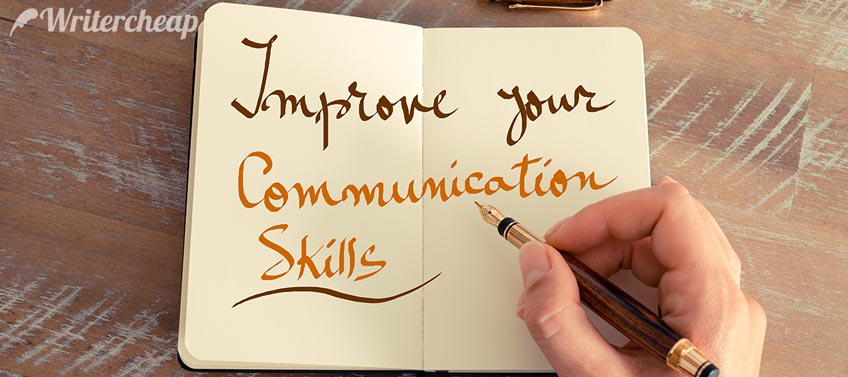 Writercheap
Improve your
Communication
Skills